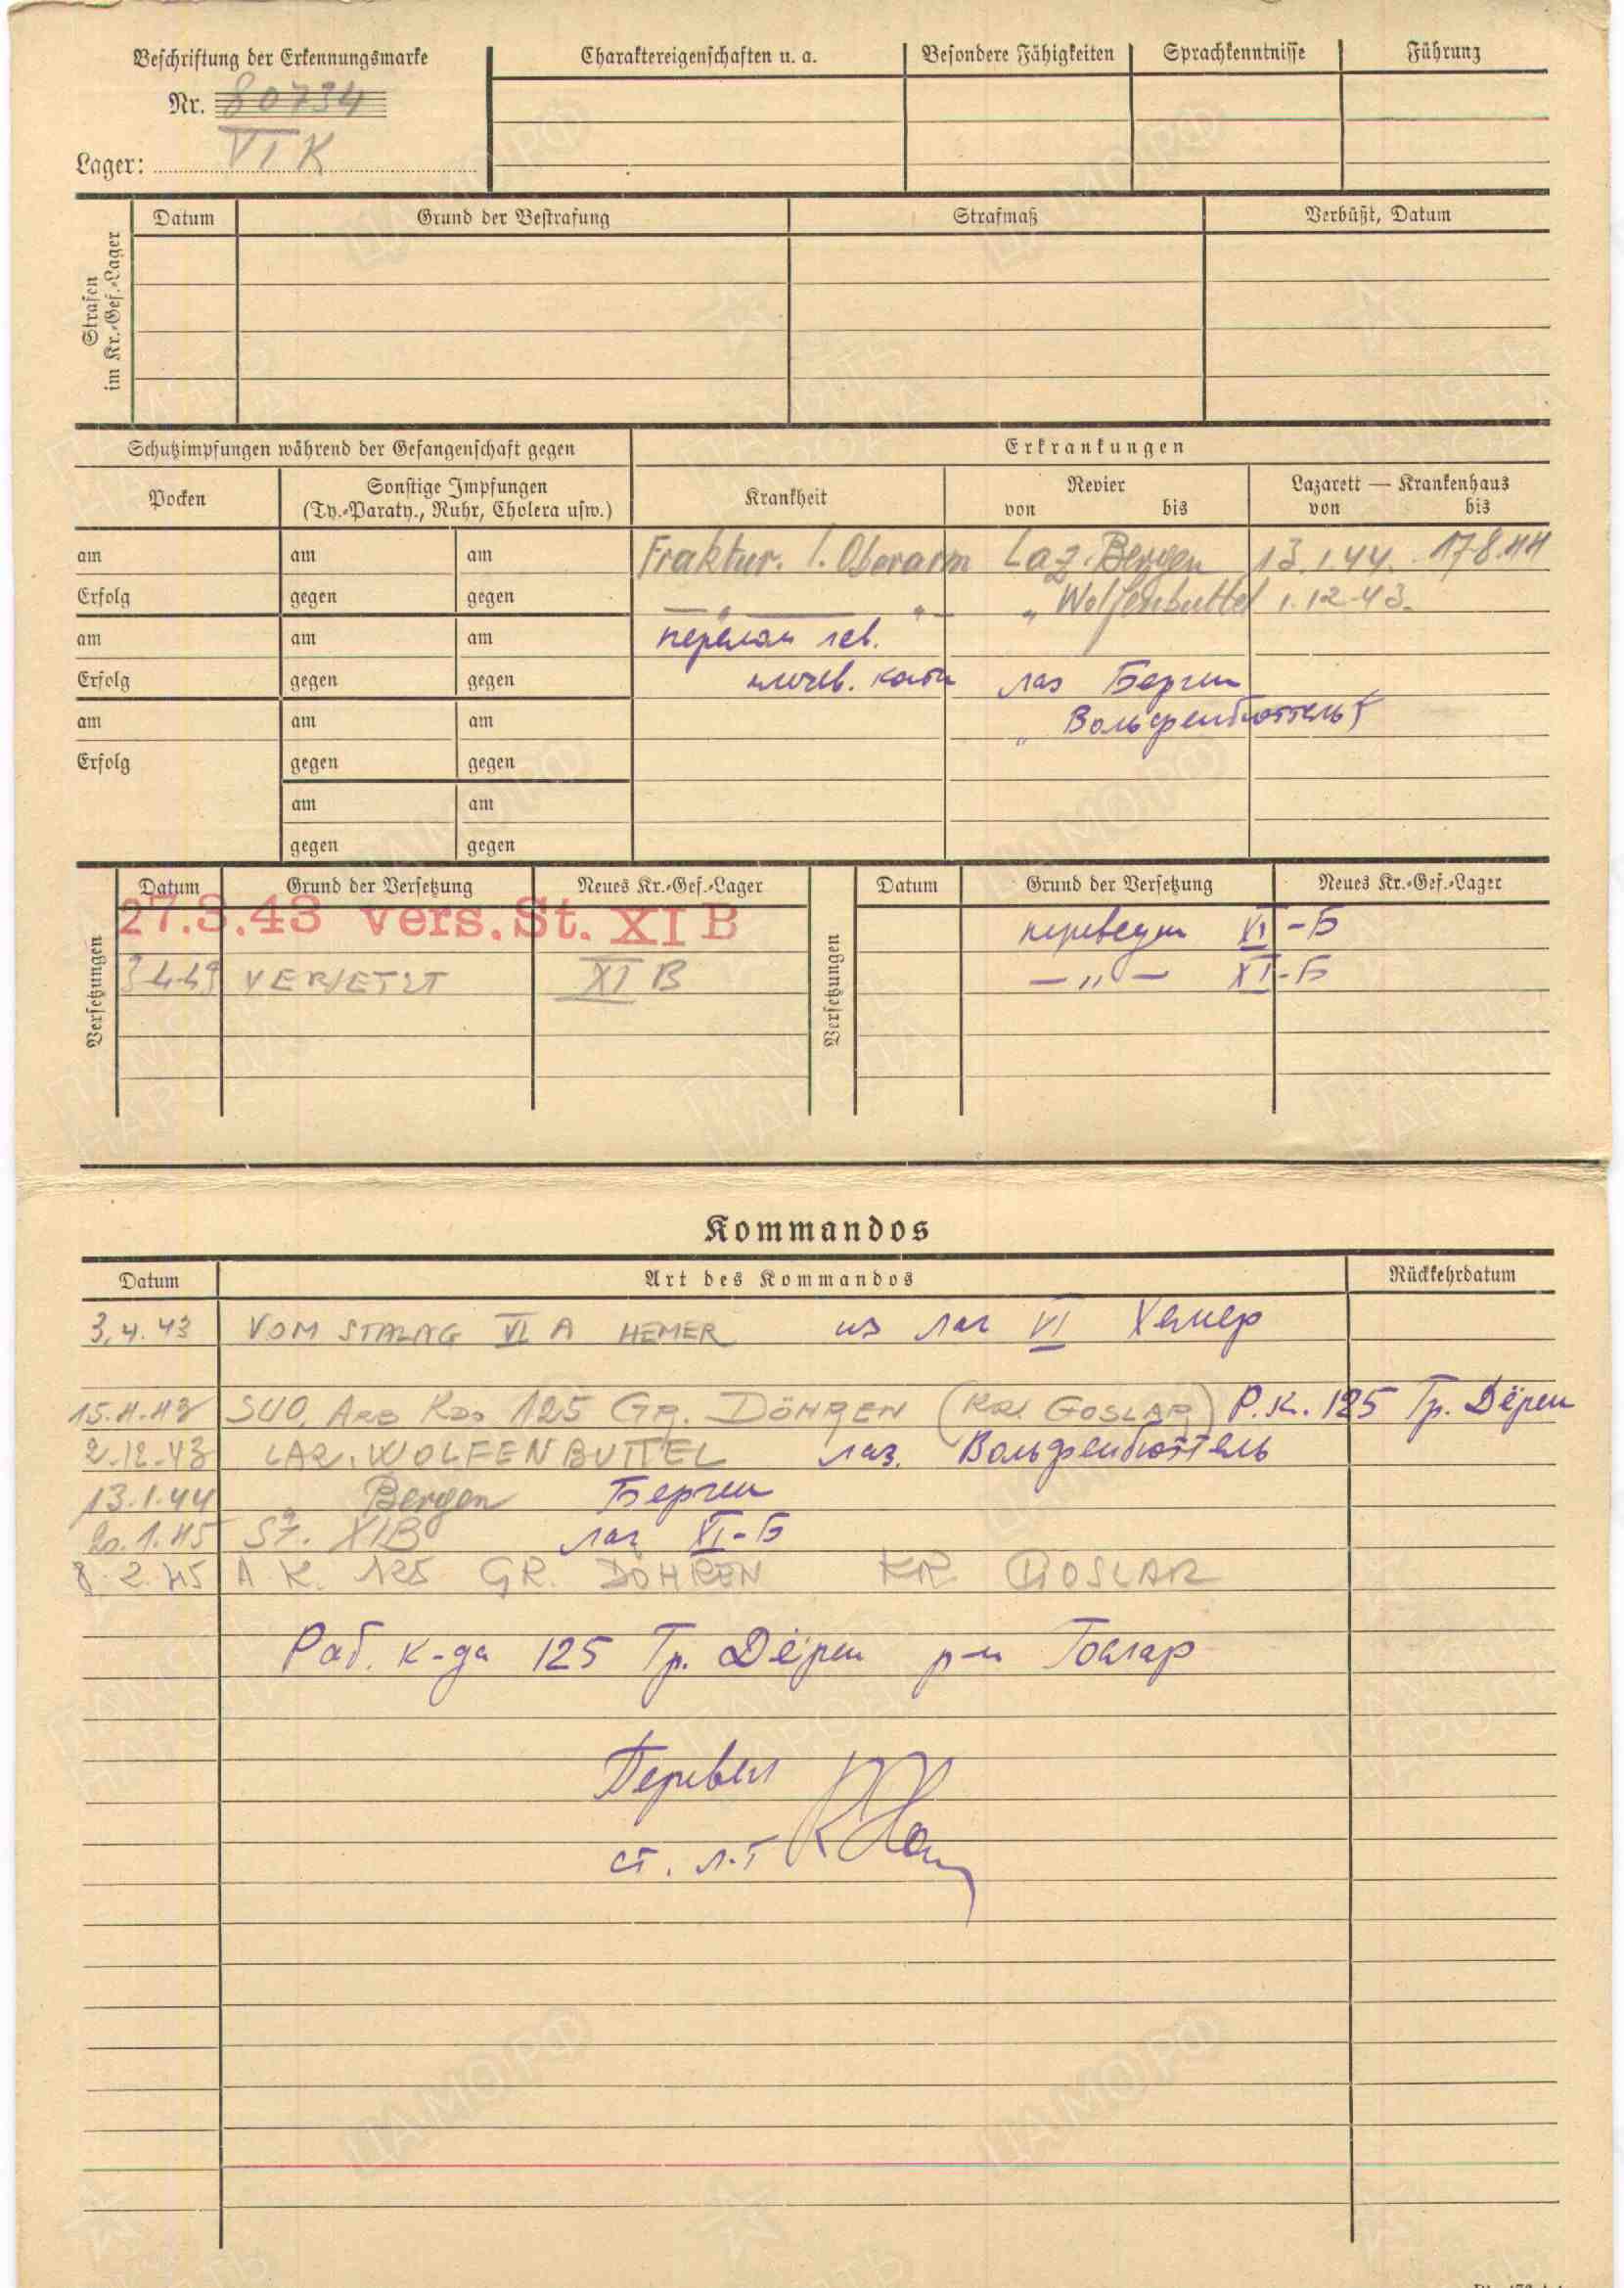 Beschriftung der Erkennungsmarke
Nr. 80734
Lager: VI K
Charaktereigenschaften u. a.
Besondere Fähigkeiten
Sprachkenntnisse
Führung
Strafen im Kr.-Gef.-Lager
Datum Grund der Bestrafung Strafmaß Verbüßt, Datum
Schutzimpfungen während der Gefangenschaft gegen
Erkrankungen
Pocken
Sonstige Impfungen
(Ty.-Paraty., Ruhr, Cholera usw.)
Krankheit
Revier
von bis
Lazarett — Krankenhaus
von bis
am am am Fraktur. l. Oberarm Laz. Bergen 13.1.44. 17.8.44
Erfolg gegen gegen — „ — „ — „ Wolfenbuttel 1.12.43.
am am am перелом лев.
Erfolg gegen gegen ключ. кости лаз Берген
am am am „ Вольфенбюттель
Erfolg gegen gegen
am am
gegen gegen
Versetzungen
Datum Grund der Versetzung Neues Kr.-Gef.-Lager
27.3.43 vers. St. XI B
VERSETZT XI B
Versetzungen
Datum Grund der Versetzung Neues Kr.-Gef.-Lager
переведен XI-Б
— „ — XI-Б
Kommandos
Datum Art des Kommandos Rückkehrdatum
3.4.43 VOM STALAG VI A HEMER из лаг VI Хемер
15.4.43 ARB KDO 125 GR. DÖHREN (KR. GOSLAR) Р.К. 125 Гр. Дёрен
2.12.43 LAZ. WOLFENBUTTEL лаз. Вольфенбюттель
13.1.44 „ Bergen Берген
20.1.45 St. XIB лаг XI-Б
8.2.45 A K. 125 GR. DÖHREN KR GOSLAR
Раб. к-да 125 Гр. Дёрен р-н Гослар
Перевел
ст. л-т